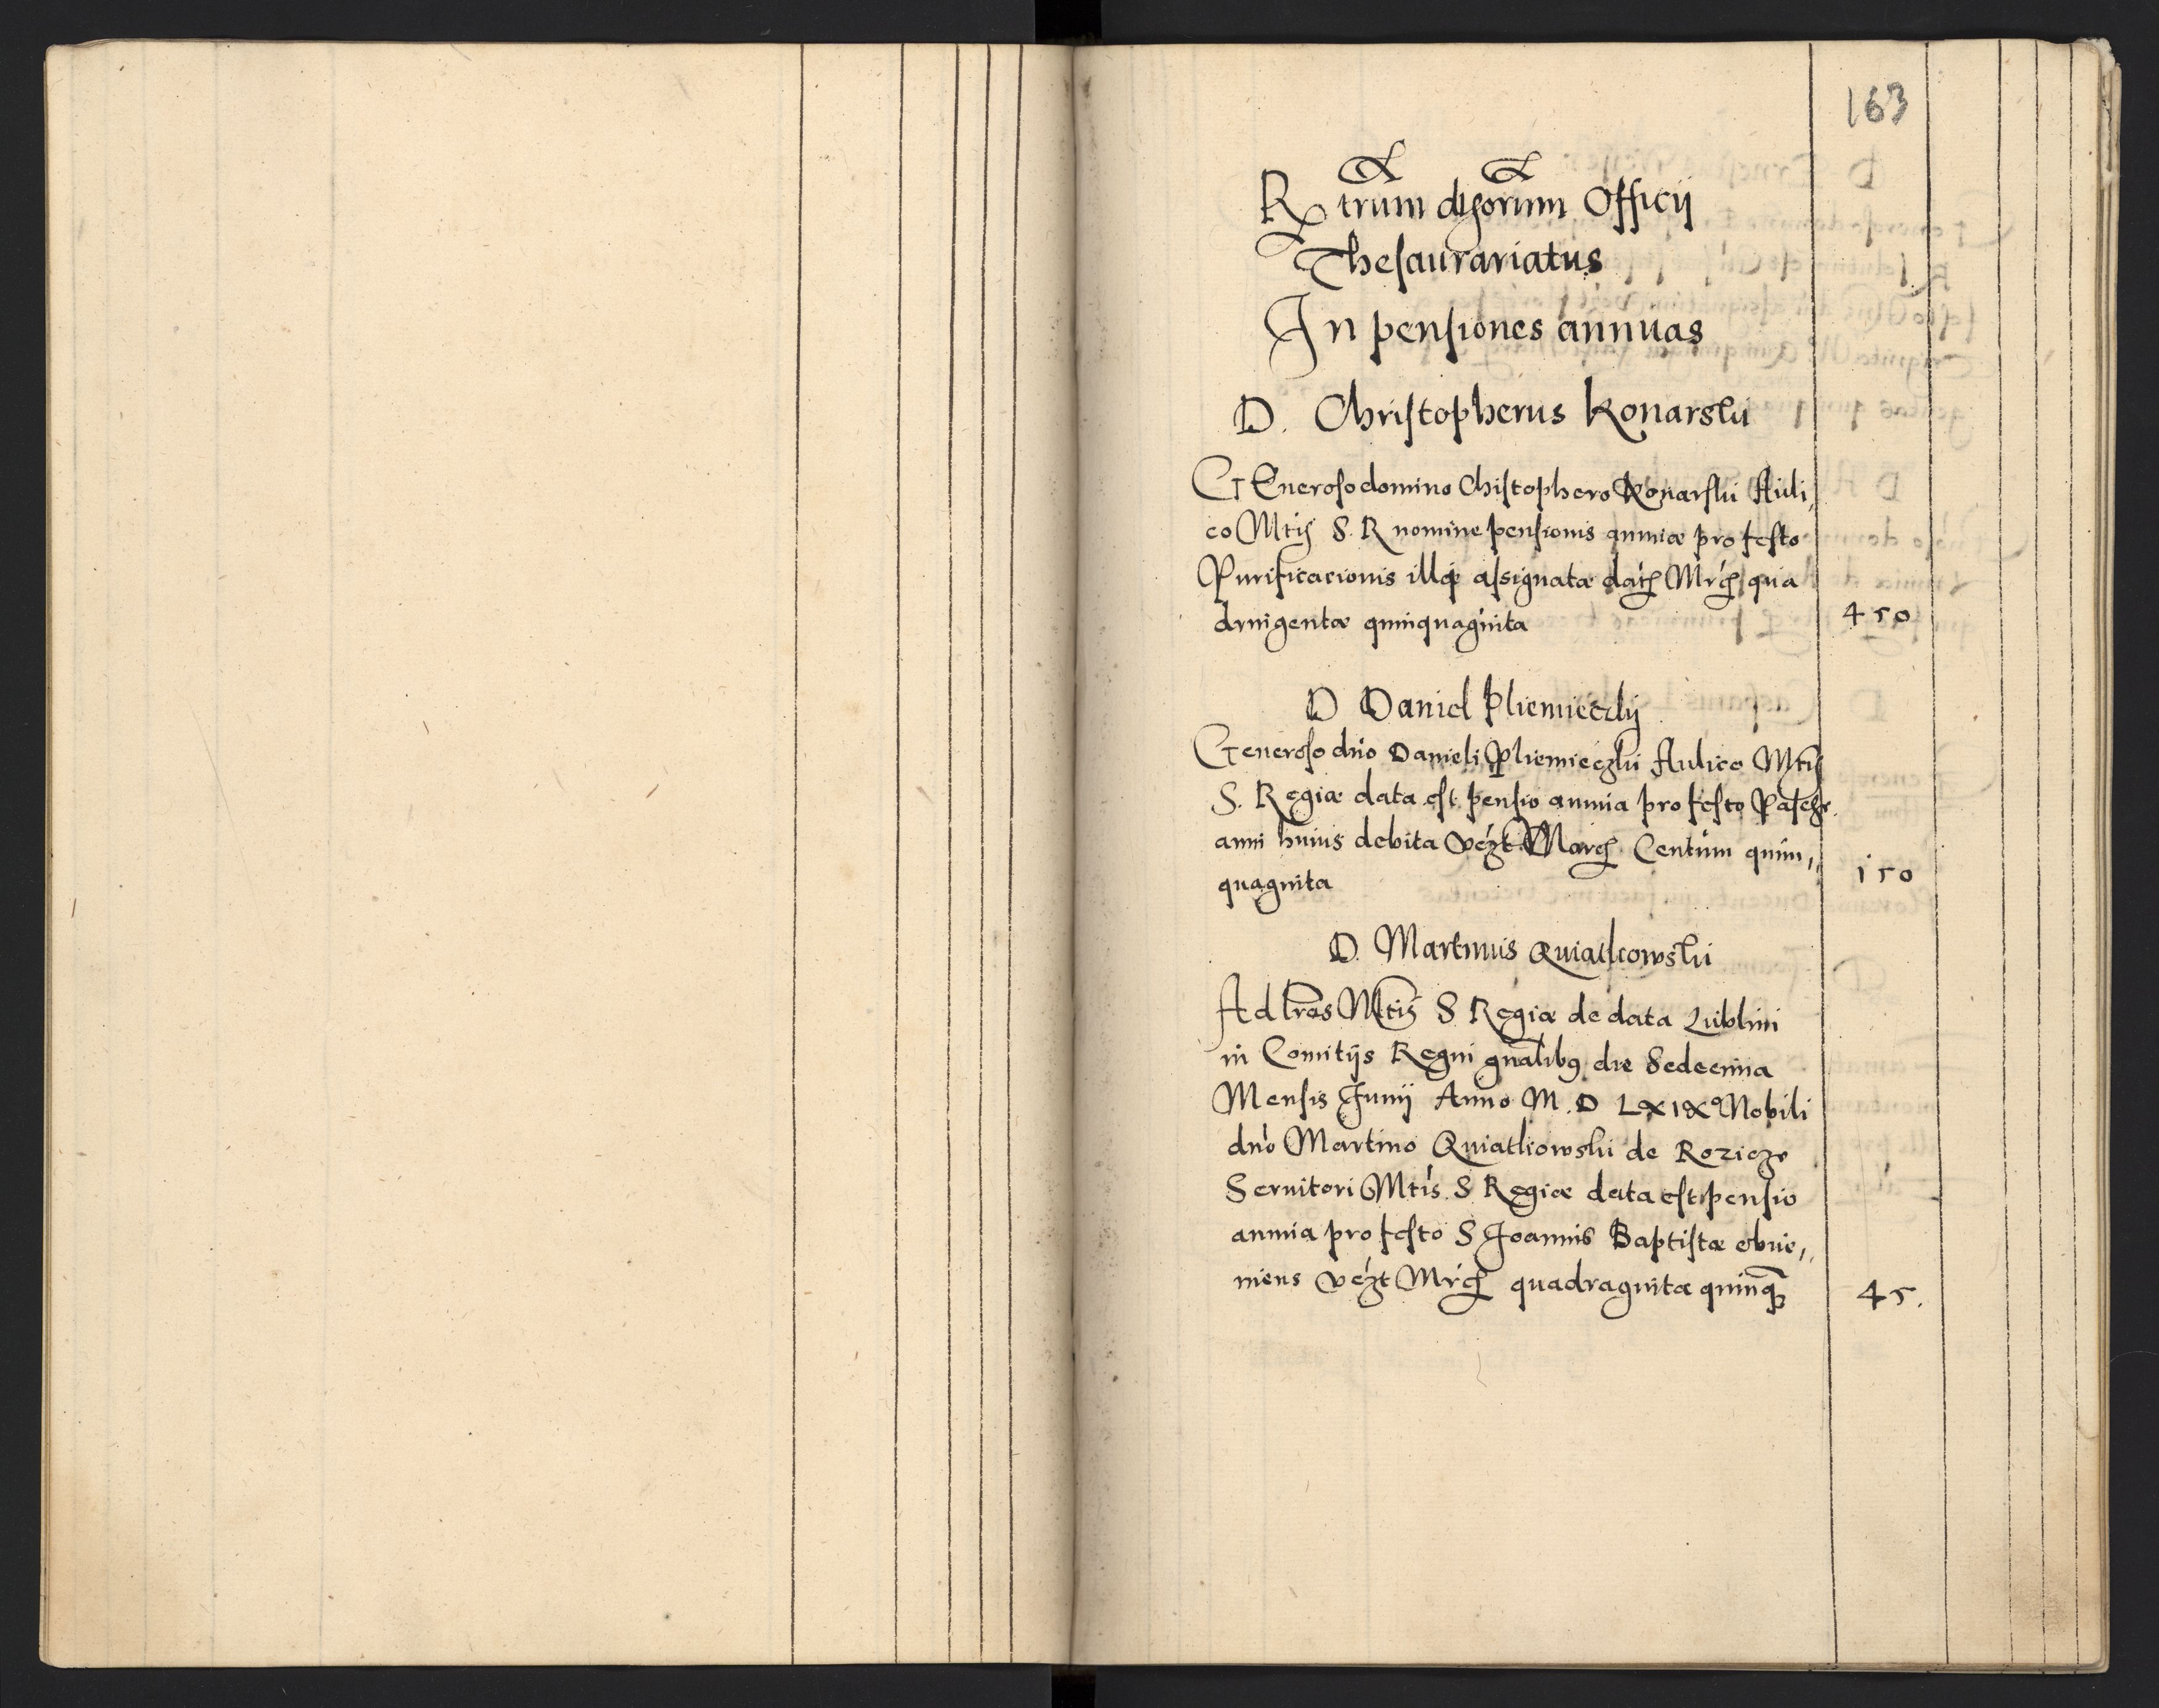 163
Rtrum disorum Officij
Thesaurariatus
In pensiones annuas
D. Christopherus Konarski
GEneroso domino Chistophero Konarski Auli,
co Mtis S. R nomine pensionis annuæ pro festo
Purificacionis illiq assignatæ datæ Mrcæ qua
druigentæ quinquaginta 450
D Daniel Pliemieczkij
Generoso dno Danieli Pliemieczki Aulico Mtis
S. Regiæ data est pensio annua pro festo Pasche
anni huius debita vězt Marcæ Centum quin,,
quaginta 150
D. Martinus Quiatkowski
Ad lras Mtis S Regiæ de data Lublini
in Comitijs Regni gnalibus die Sedecima
Mensis Junij Anno M. D LXIXº Nobili
dno Martino Quiatkowski de Rozicze
Seruitori Mtis S Regiæ data est pensio
annua pro festo S Joannis Baptistæ obue,,
niens vězt Mrcæ quadraginta quinq 45.